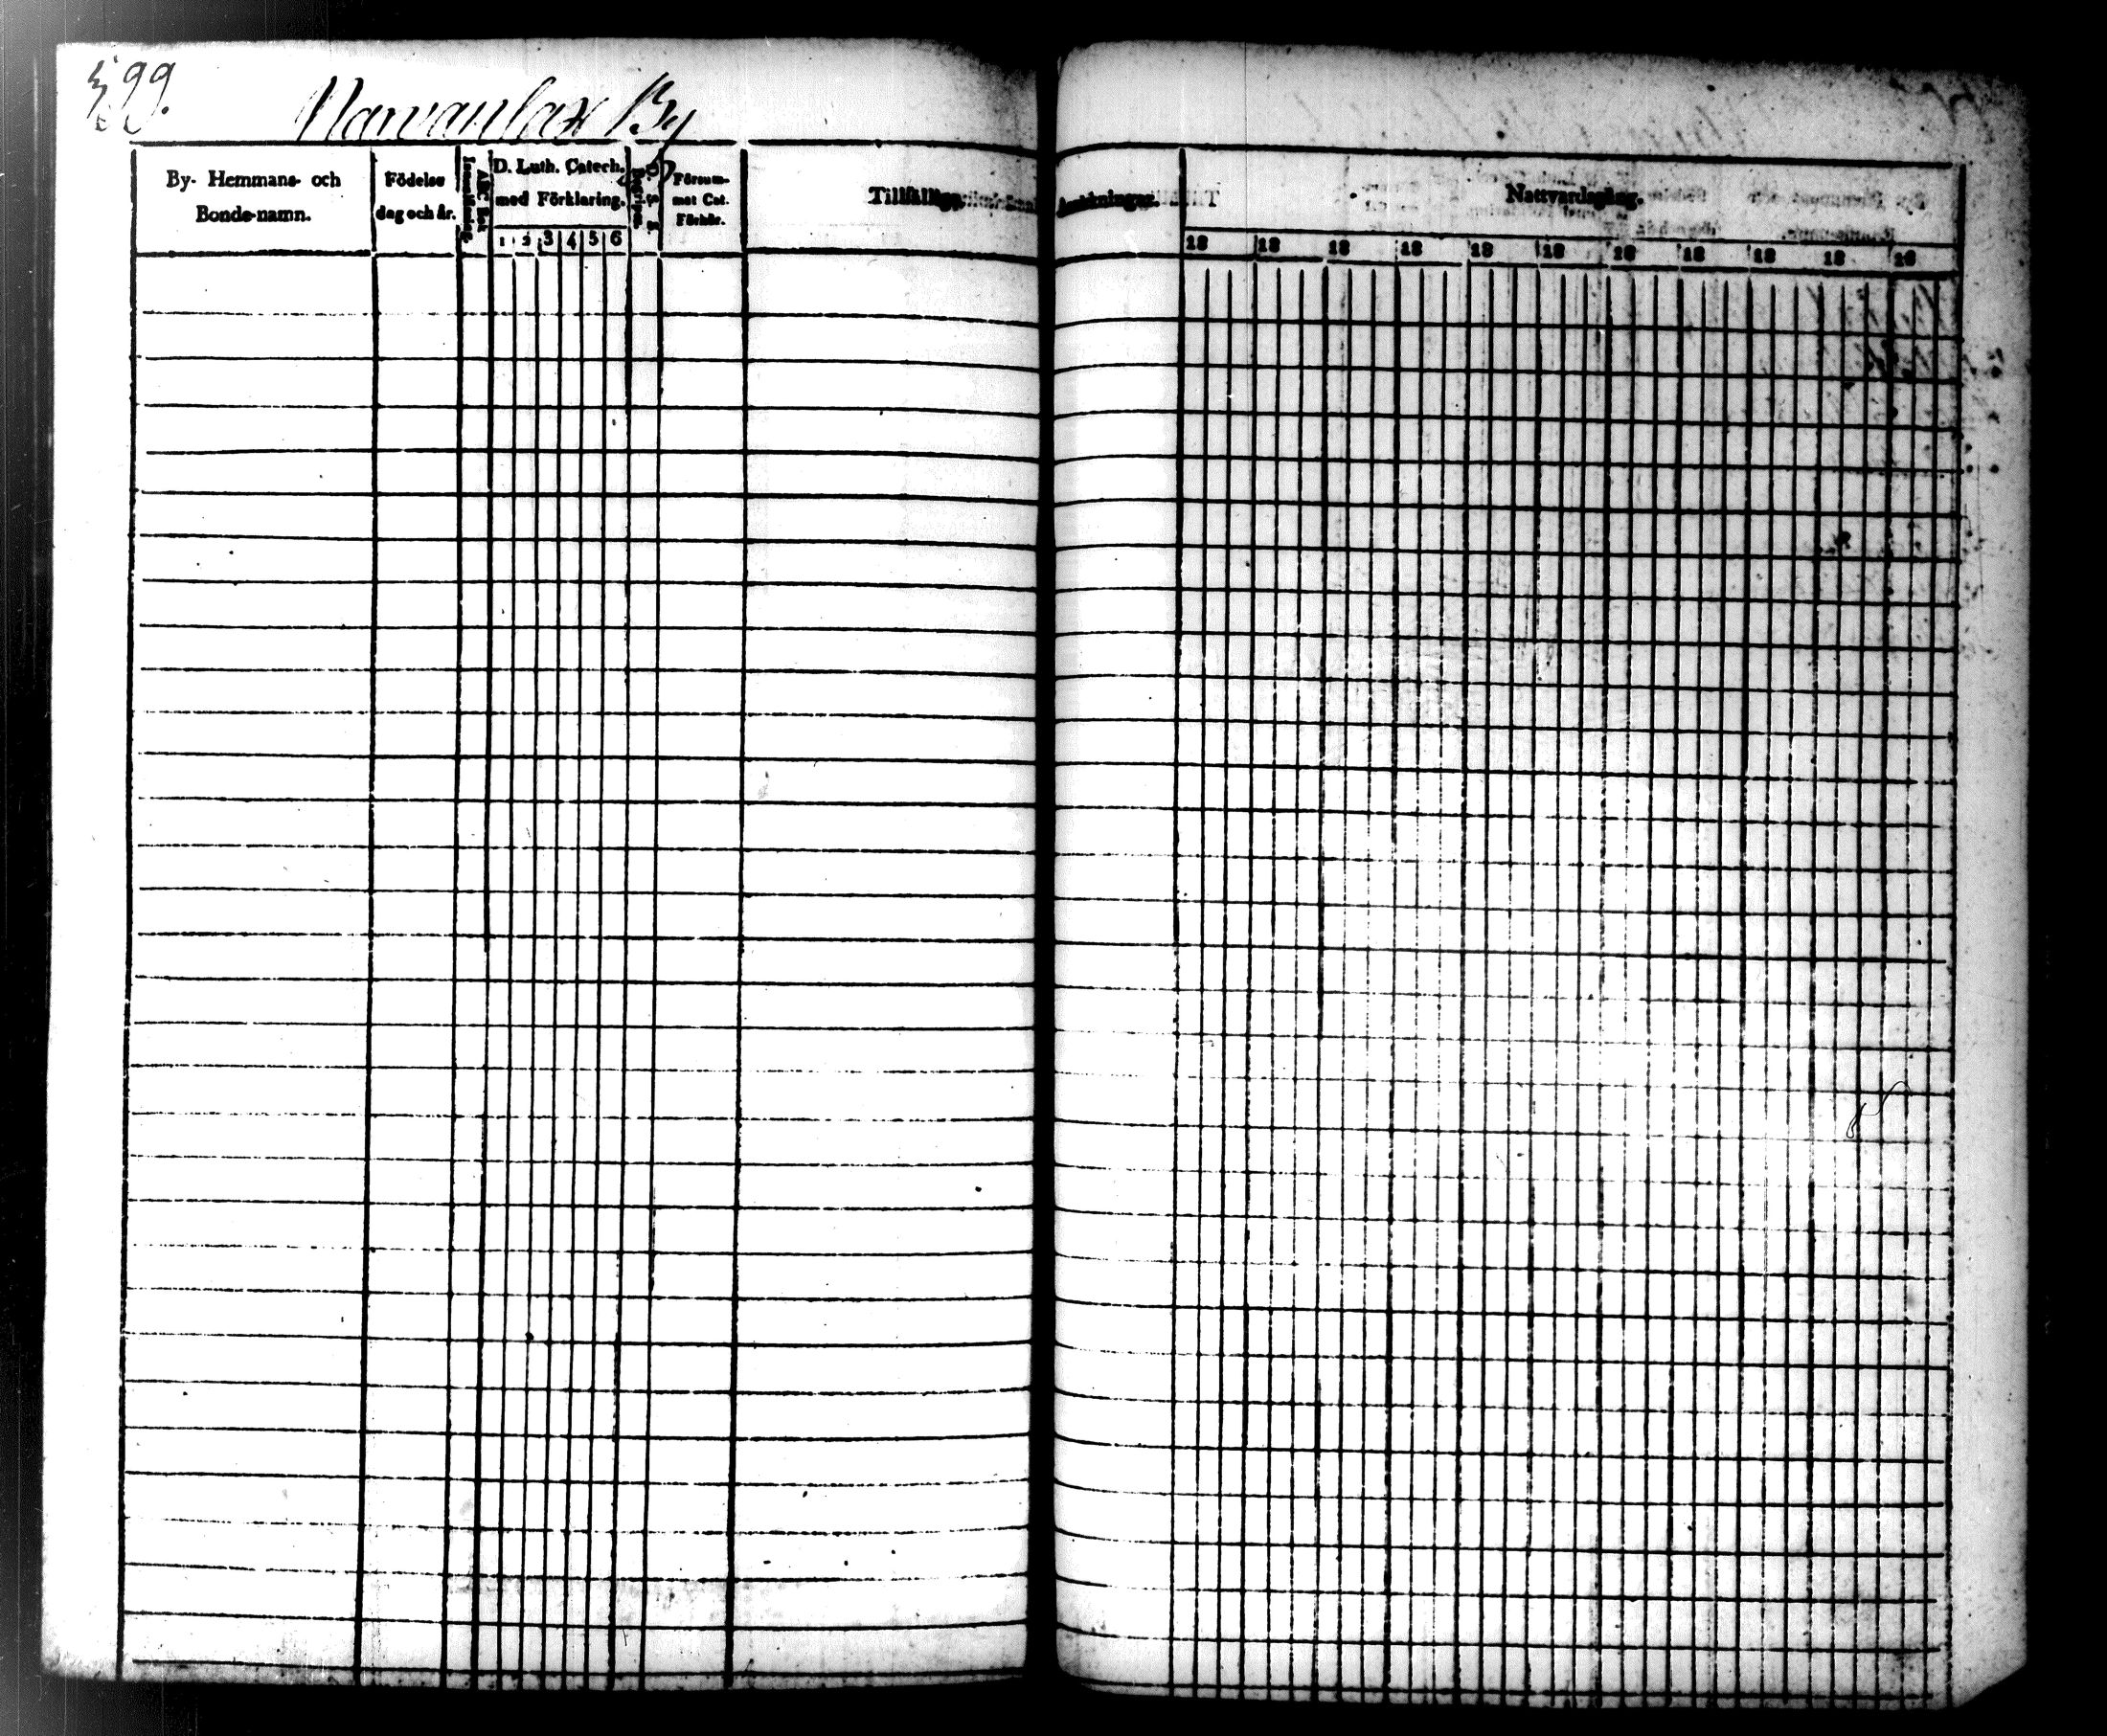 599.
Narvanlax By
By- Hemmans- och
Bonde-namn.
Födelse
dag och år.
ABC Bok
Innanläsning
D. Luth. Catech.
med Förklaring.
1 2 3 4 5 6
Begripen
D. S. S.
Försum-
mat Cat.
Förhör.
Tillfällige
Anmärkningar.
Nattvardsgång.
18 18 18 18 18 18 18 18 18 18 18